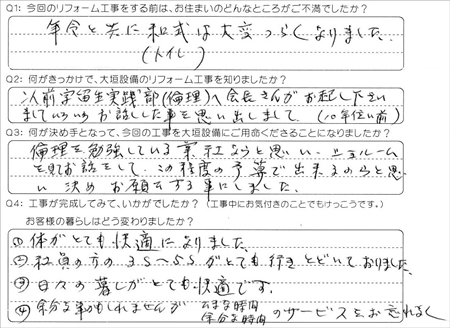 Q1: 今回のリフォーム工事をする前は、お住まいのどんなところがご不満でしたか?
年令と共に和式は大変つらくなりました。
(トイレ)
Q2: 何がきっかけで、大垣設備のリフォーム工事を知りましたか?
以前宇留生実践部(倫理)へ会長さんがお起し下さい
ましていろいろお話しした事を思い出しまして。(10年位い前)
Q3: 何が決め手となって、今回の工事を大垣設備にご用命くださることになりましたか?
倫理を勉強している業社ならと思い、ショールーム
を見てお話をして、この程度の予算で出来るのならと思
い決めお願いする事にしました。
Q4: 工事が完成してみて、いかがでしたか?(工事中にお気付きのことでもけっこうです。)
お客様の暮らしはどう変わりましたか?
① 体がとても快適になりました。
② 社員の方の3S〜5Sがとても行きとどいておりました。
③ 日々の暮しがとても快適です。
④ 余分な事かもしれませんが ムダな時間 余分な時間 のサービスをお忘れなく